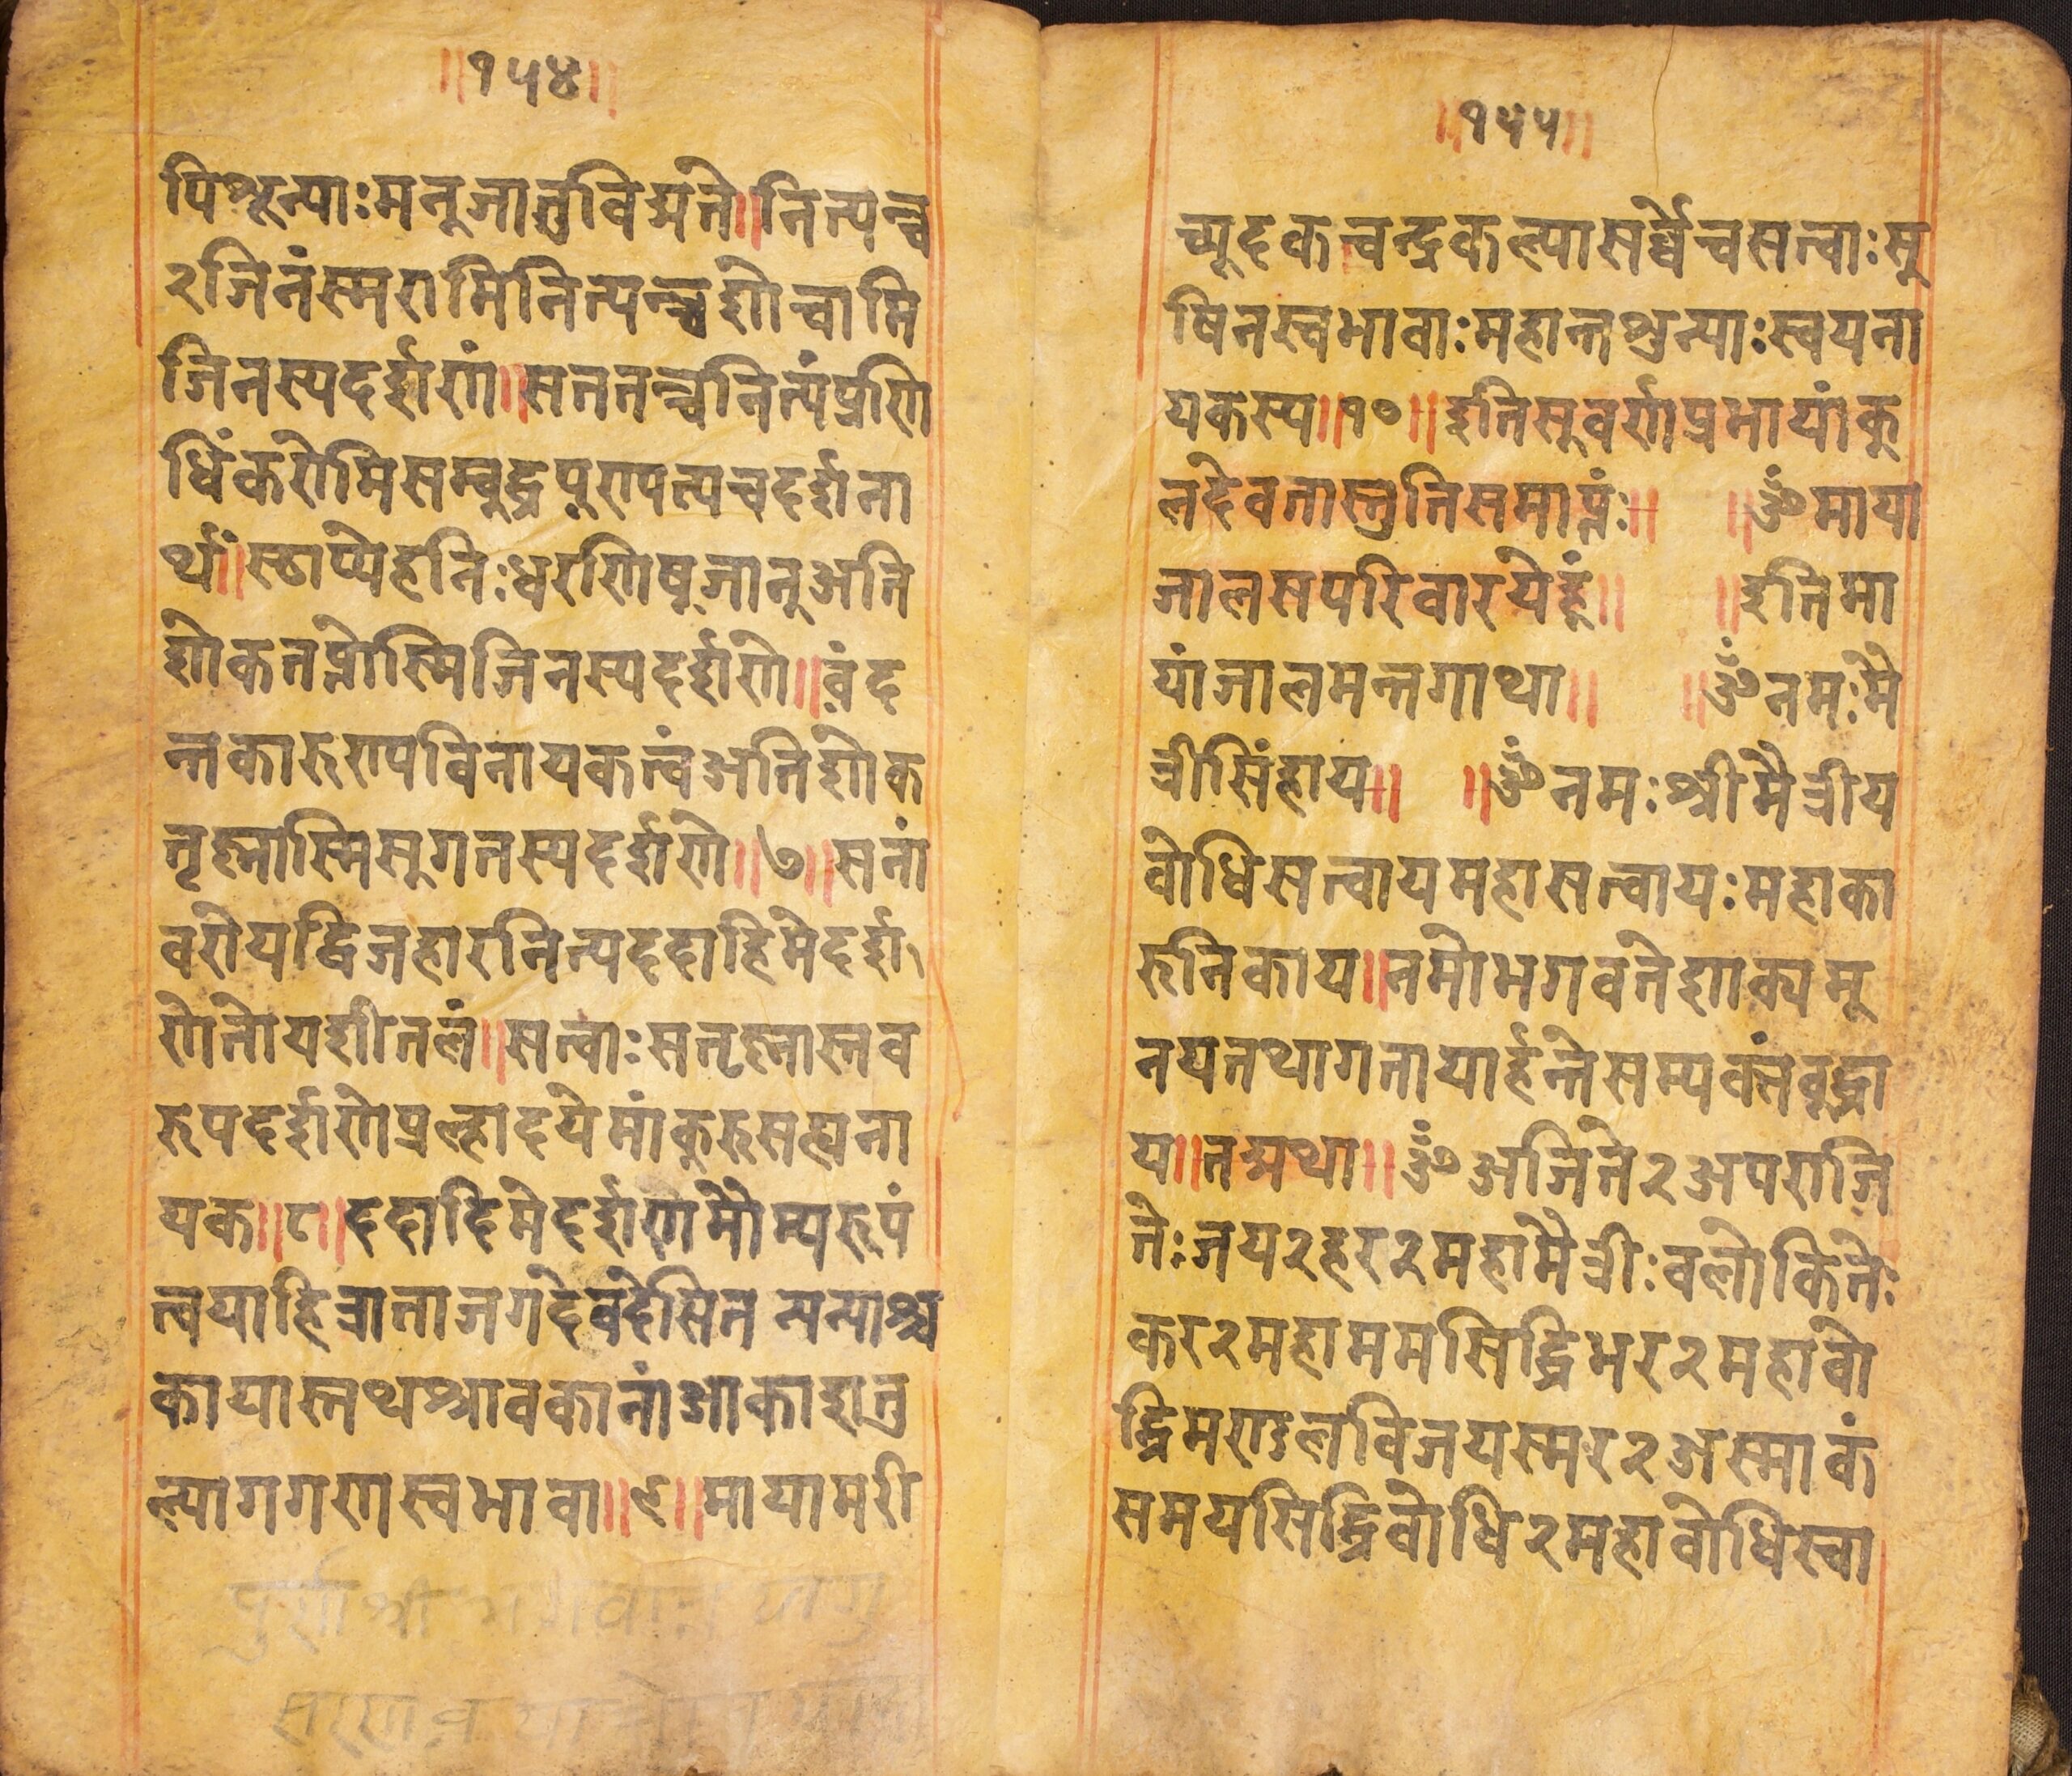 ॥१५४॥
पिश्रून्याःमनूजातुविद्यते॥नित्यन्च
२जिनंस्मरामिनित्यन्च्चशोचामि
जिनस्यदर्शणं॥सततन्च्चनित्यंप्रणि
धिंकरोमिसम्बुद्धपूणपत्यचदर्शना
र्थं॥स्छाप्येहनिःधरणिषूजानूअति
शोकतप्तोस्मिजिनस्यदर्शणे॥वंद
न्तकारुणपविनायकत्वंअतिशोक
तृह्नास्मिसुगतस्यदर्शणे॥७॥सतां
वरोयद्विजहारनित्यददाहिमेदर्श
णेतोयशीतलं॥सत्वाःसतृह्नास्तव
रूपदर्शणेप्रल्हादयेमांकुरुसह्यना
यक॥८॥ददादिमेदर्शणमौम्यरूपं
त्वयाहित्राताजगदेवदेसित मन्याश्च
कायास्तथश्रावकानांआकाशतु
ल्यागगणस्वभावा॥९॥मायामरी
॥१५५॥
च्यूदकचन्द्रकल्पासर्व्वेचसत्वाःसू
षिनस्वभावाःमहान्तश्रुन्याःस्वयना
यकस्य॥१०॥इतिसूवर्णप्रभायांकु
लदेवतास्तुतिसमाप्तंः॥ ॥ॐमाया
जालसपरिवारयेहूं॥ ॥इतिमा
यांजालमन्तगाथा॥ ॥ॐनमःमै
त्रीसिंहाय॥ ॥ॐनमःश्रीमैत्रीय
वोधिसत्वायमहासत्वायःमहाका
रुनिकाय॥नमोभगवतेशाक्यमू
नयतथागतायार्हन्तेसम्यक्तंबूद्धा
य॥तद्यथा॥ॐअजिते२अपराजि
तेःजय२हर२महामैत्रीःवलोकितेः
कर२महाममसिद्धिभर२महावो
द्धिमण्डलविजयस्मर२अस्माकं
समयसिद्धिवोधि२महावोधिस्वा